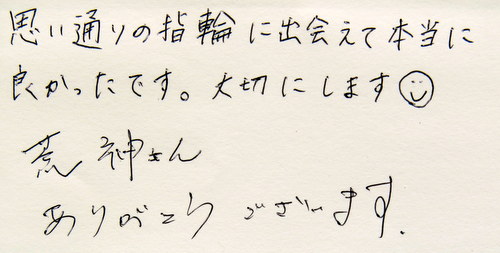 思い通りの指輪に出会えて本当に
良かったです。大切にします☺
荒神さん
ありがとうございます.